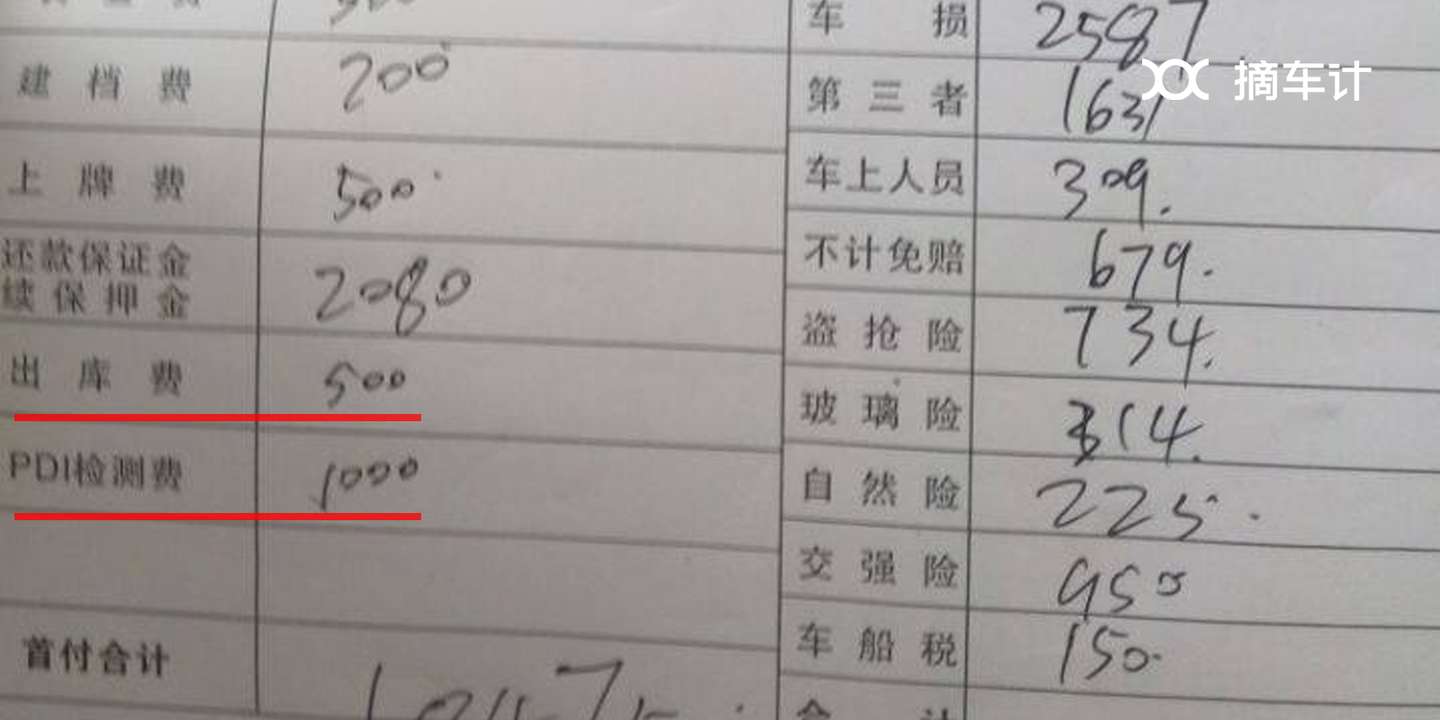 车 损 2587
摘车计
建 档 费 200
第 三 者 1631
上 牌 费 500
车上人员 309.
还款保证金
续 保 押 金 2080
不计免赔 679.
盗 抢 险 734.
出 库 费 500
玻 璃 险 314.
PDI检测费 1000
自 然 险 225.
交 强 险 950
首付合计
车 船 税 150.